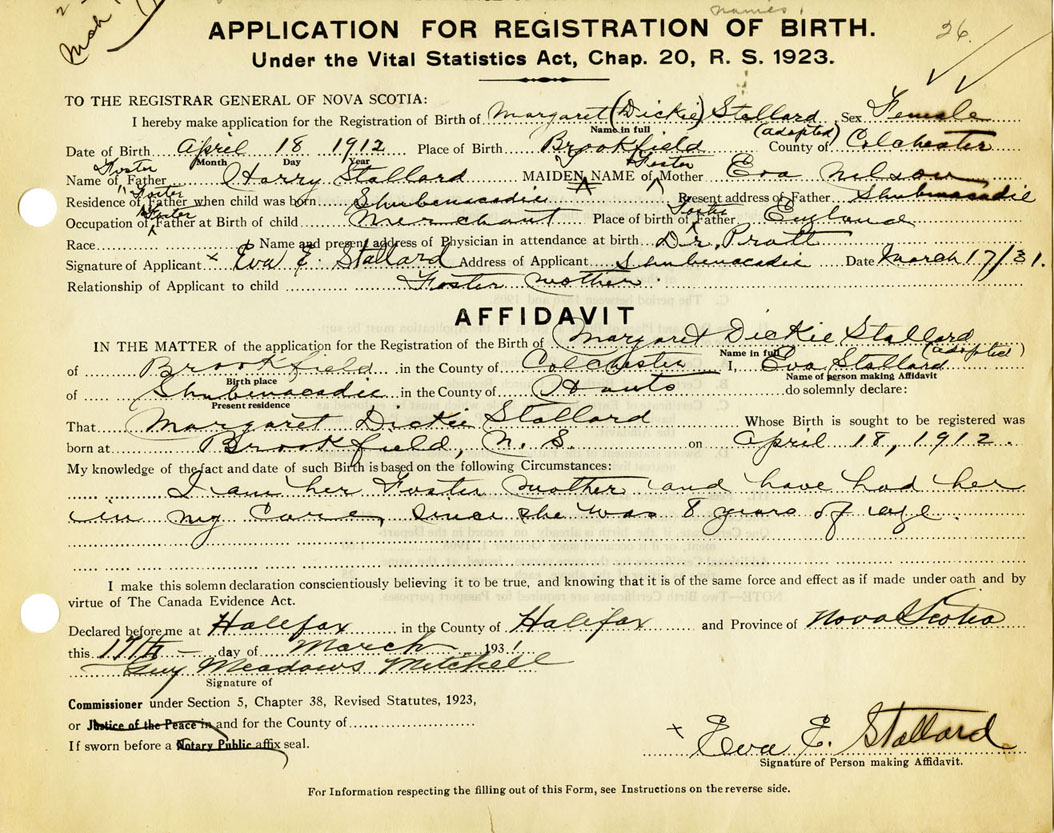 names
26
APPLICATION FOR REGISTRATION OF BIRTH.
Under the Vital Statistics Act, Chap. 20, R. S. 1923.
TO THE REGISTRAR GENERAL OF NOVA SCOTIA:
I hereby make application for the Registration of Birth of Margaret (Dickie) Stallard Sex Female
Name in full (adopted)
Date of Birth April 18 1912 Place of Birth Brookfield County of Colchester
Month Day Year
Foster Foster
Name of Father Harry Stallard MAIDEN NAME of Mother Eva Nelson
Foster
Residence of Father when child was born Shubenacadie Present address of Father Shubenacadie
Foster Foster
Occupation of Father at Birth of child Merchant Place of birth of Father England
Race Name and present address of Physician in attendance at birth Dr. Pratt
Signature of Applicant x Eva E. Stallard Address of Applicant Shubenacadie Date March 17/31.
Relationship of Applicant to child Foster Mother.
AFFIDAVIT
IN THE MATTER of the application for the Registration of the Birth of Margaret Dickie Stallard
Name in full (adopted)
of Brookfield in the County of Colchester I, Eva Stallard
Birth place Name of person making Affidavit
of Shubenacadie in the County of Hants do solemnly declare:
Present residence
That Margaret Dickie Stallard Whose Birth is sought to be registered was
born at Brookfield, N. S. on April 18, 1912.
My knowledge of the fact and date of such Birth is based on the following Circumstances:
I am her Foster Mother and have had her
in my care, since she was 8 years of age.
I make this solemn declaration conscientiously believing it to be true, and knowing that it is of the same force and effect as if made under oath and by
virtue of The Canada Evidence Act.
Declared before me at Halifax in the County of Halifax and Province of Nova Scotia
this 17th day of March 1931
Guy Meadows Mitchell
Signature of
Commissioner under Section 5, Chapter 38, Revised Statutes, 1923,
or Justice of the Peace in and for the County of
If sworn before a Notary Public affix seal.
x Eva E. Stallard
Signature of Person making Affidavit.
For Information respecting the filling out of this Form, see Instructions on the reverse side.